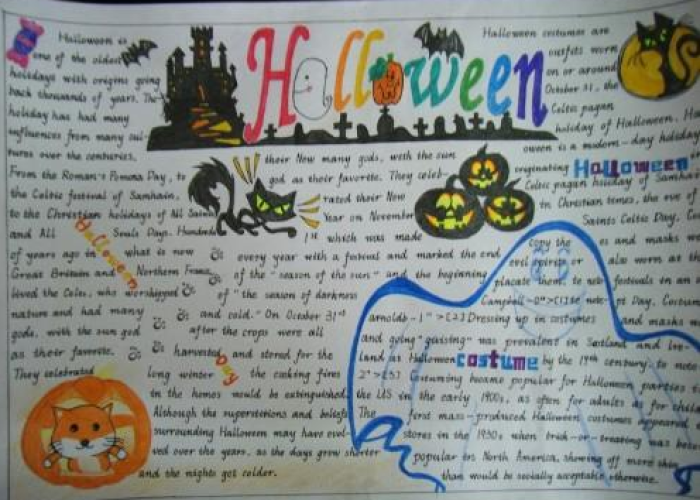 Halloween
Halloween is
one of the oldest
holidays with origins going
back thousands of years. The
holiday has had many
influences from many cul-
tures over the centuries.
From the Roman's Pomona Day, to
the Celtic festival of Samhain,
to the Christian holidays of All Saints
and All Souls Days. Hundreds
of years ago in what is now
Great Britain and Northern France,
lived the Celts, who worshipped
nature and had many
gods, with the sun god
as their favorite.
They celebrated
Halloween
their New many gods, with the sun
god as their favorite. They celeb-
rated their New
Year on November
1st which was made
every year with a festival and marked the end
of the "season of the sun" and the beginning
of "the season of darkness
and cold." On October 31st
after the crops were all
harvested and stored for the
long winter the cooking fires
in the homes would be extinguished.
Although the superstitions and beliefs
surrounding Halloween may have evol-
ved over the years, as the days grow shorter
and the nights got colder.
Day
Halloween costumes are
outfits worn
on or around
October 31, the
Celtic pagan
holiday of Halloween. H
oween is a modern-day holiday
originating Halloween
Celtic pagan holiday of Samhain
in Christian times, the eve of
Saints Celtic Day. C
copy the es and masks w
evil spirits or also worn at th
placate them to note festivals in an
Campbell-0">[1] to note- pt Day. Costum
arnolds-1">[2] Dressing up in costumes and masks a
and going "guising" was prevalent in Scotland and Ire-
land as Halloween costume by the 19th century to note-
2">[3] Costuming became popular for Halloween parties i
the US in the early 1900s, as often for adults as for child
The first mass-produced Halloween costumes appeared i
stores in the 1930s when trick-or-treating was beco
popular in North America, showing off more skin
than would be socially acceptable otherwise.